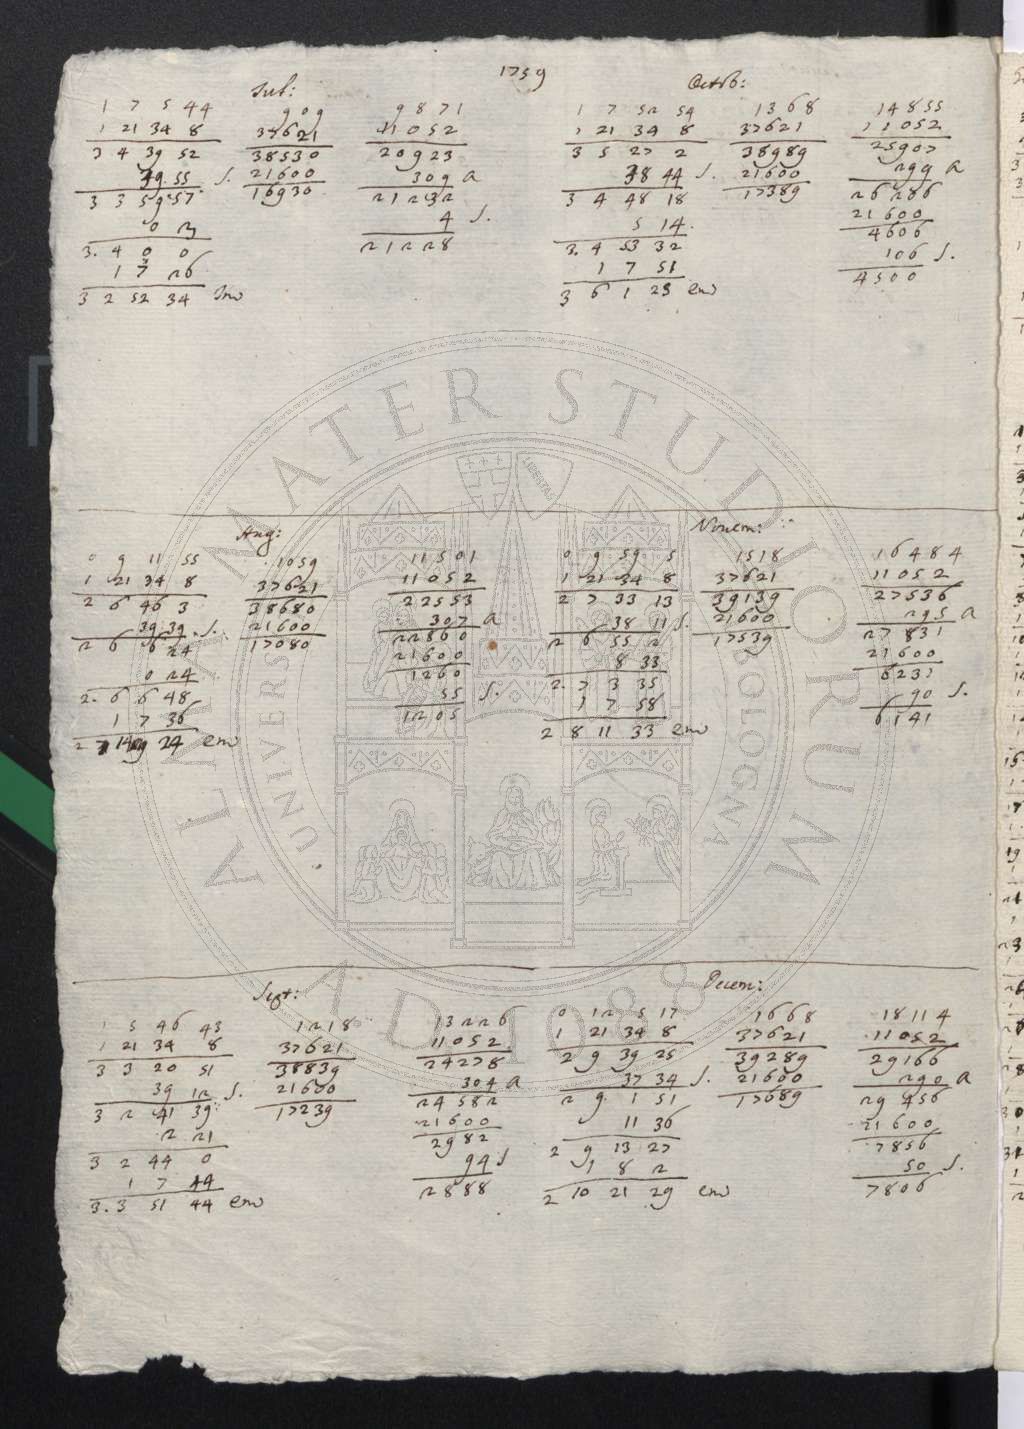 1759
Jul:
1 7 5 44
1 21 34 8
3 4 39 52
39 55 S.
3 3 59 57
0 3
3. 4 0 0
1 7 26
3 2 52 34 Im
909
37621
38530
21600
16930
9871
11052
20923
309 a
21232
4 S.
21228
Octob:
1 7 52 54
1 21 34 8
3 5 27 2
38 44 S.
3 4 48 18
5 14
3. 4 53 32
1 7 51
3 6 1 23 em
1368
37621
38989
21600
17389
14855
11052
25907
299 a
26206
21600
4606
106 S.
4500
Aug:
0 9 11 55
1 21 34 8
2 6 46 3
39 39 S.
2 6 6 24
0 24
2. 6 6 48
1 7 36
24 em
1059
37621
38680
21600
17080
11501
11052
22553
307 a
22860
21600
1260
55 S.
1205
Novem:
0 9 59 5
1 21 34 8
2 7 33 13
38 11 S.
2 6 55 2
8 33
2. 7 3 35
1 7 58
2 8 11 33 em
1518
37621
39139
21600
17539
16484
11052
27536
295 a
27831
21600
6231
90 S.
6141
Sept:
1 5 46 43
1 21 34 8
3 3 20 51
39 12 S.
3 2 41 39
2 21
3 2 44 0
1 7 44
3. 3 51 44 em
1218
37621
38839
21600
17239
13226
11052
24278
304 a
24582
21600
2982
94 S
2888
Decem:
0 12 5 17
1 21 34 8
2 9 39 25
37 34 S.
2 9 1 51
11 36
2 9 13 27
1 8 2
2 10 21 29 em
1668
37621
39289
21600
17689
18114
11052
29166
290 a
29456
21600
7856
50 S.
7806
ALMA MATER STUDIORUM
UNIVERSITÀ BOLOGNA
A.D. 1088
LIBERTAS